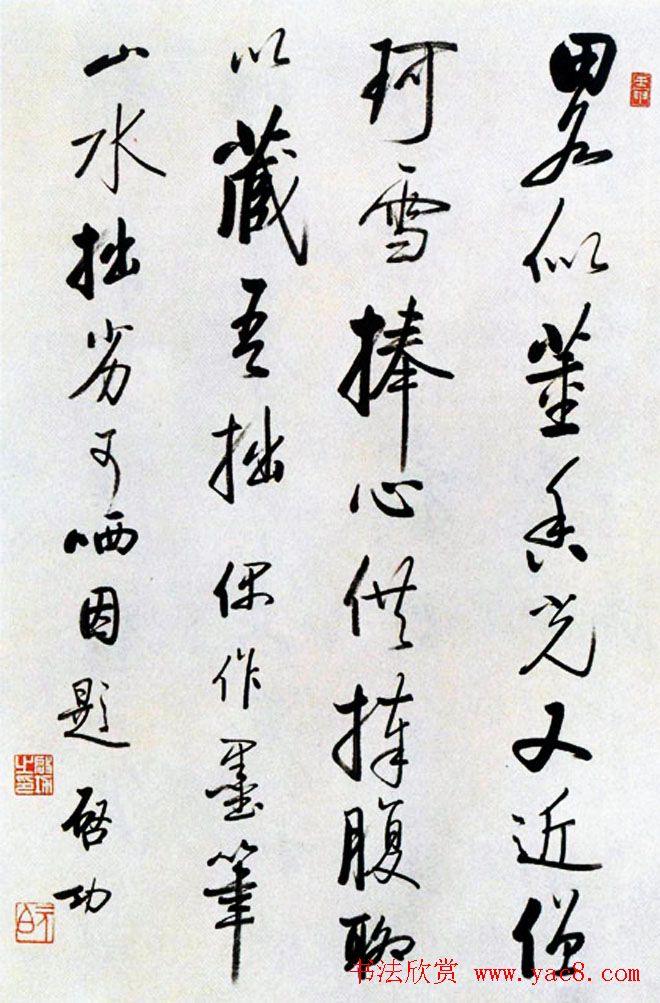 畧似董香光又近僧
珂雪捧心供捧腹聊
以藏吾拙偶作墨筆
山水拙劣可哂因題啓功
书法欣赏 www.yac8.com